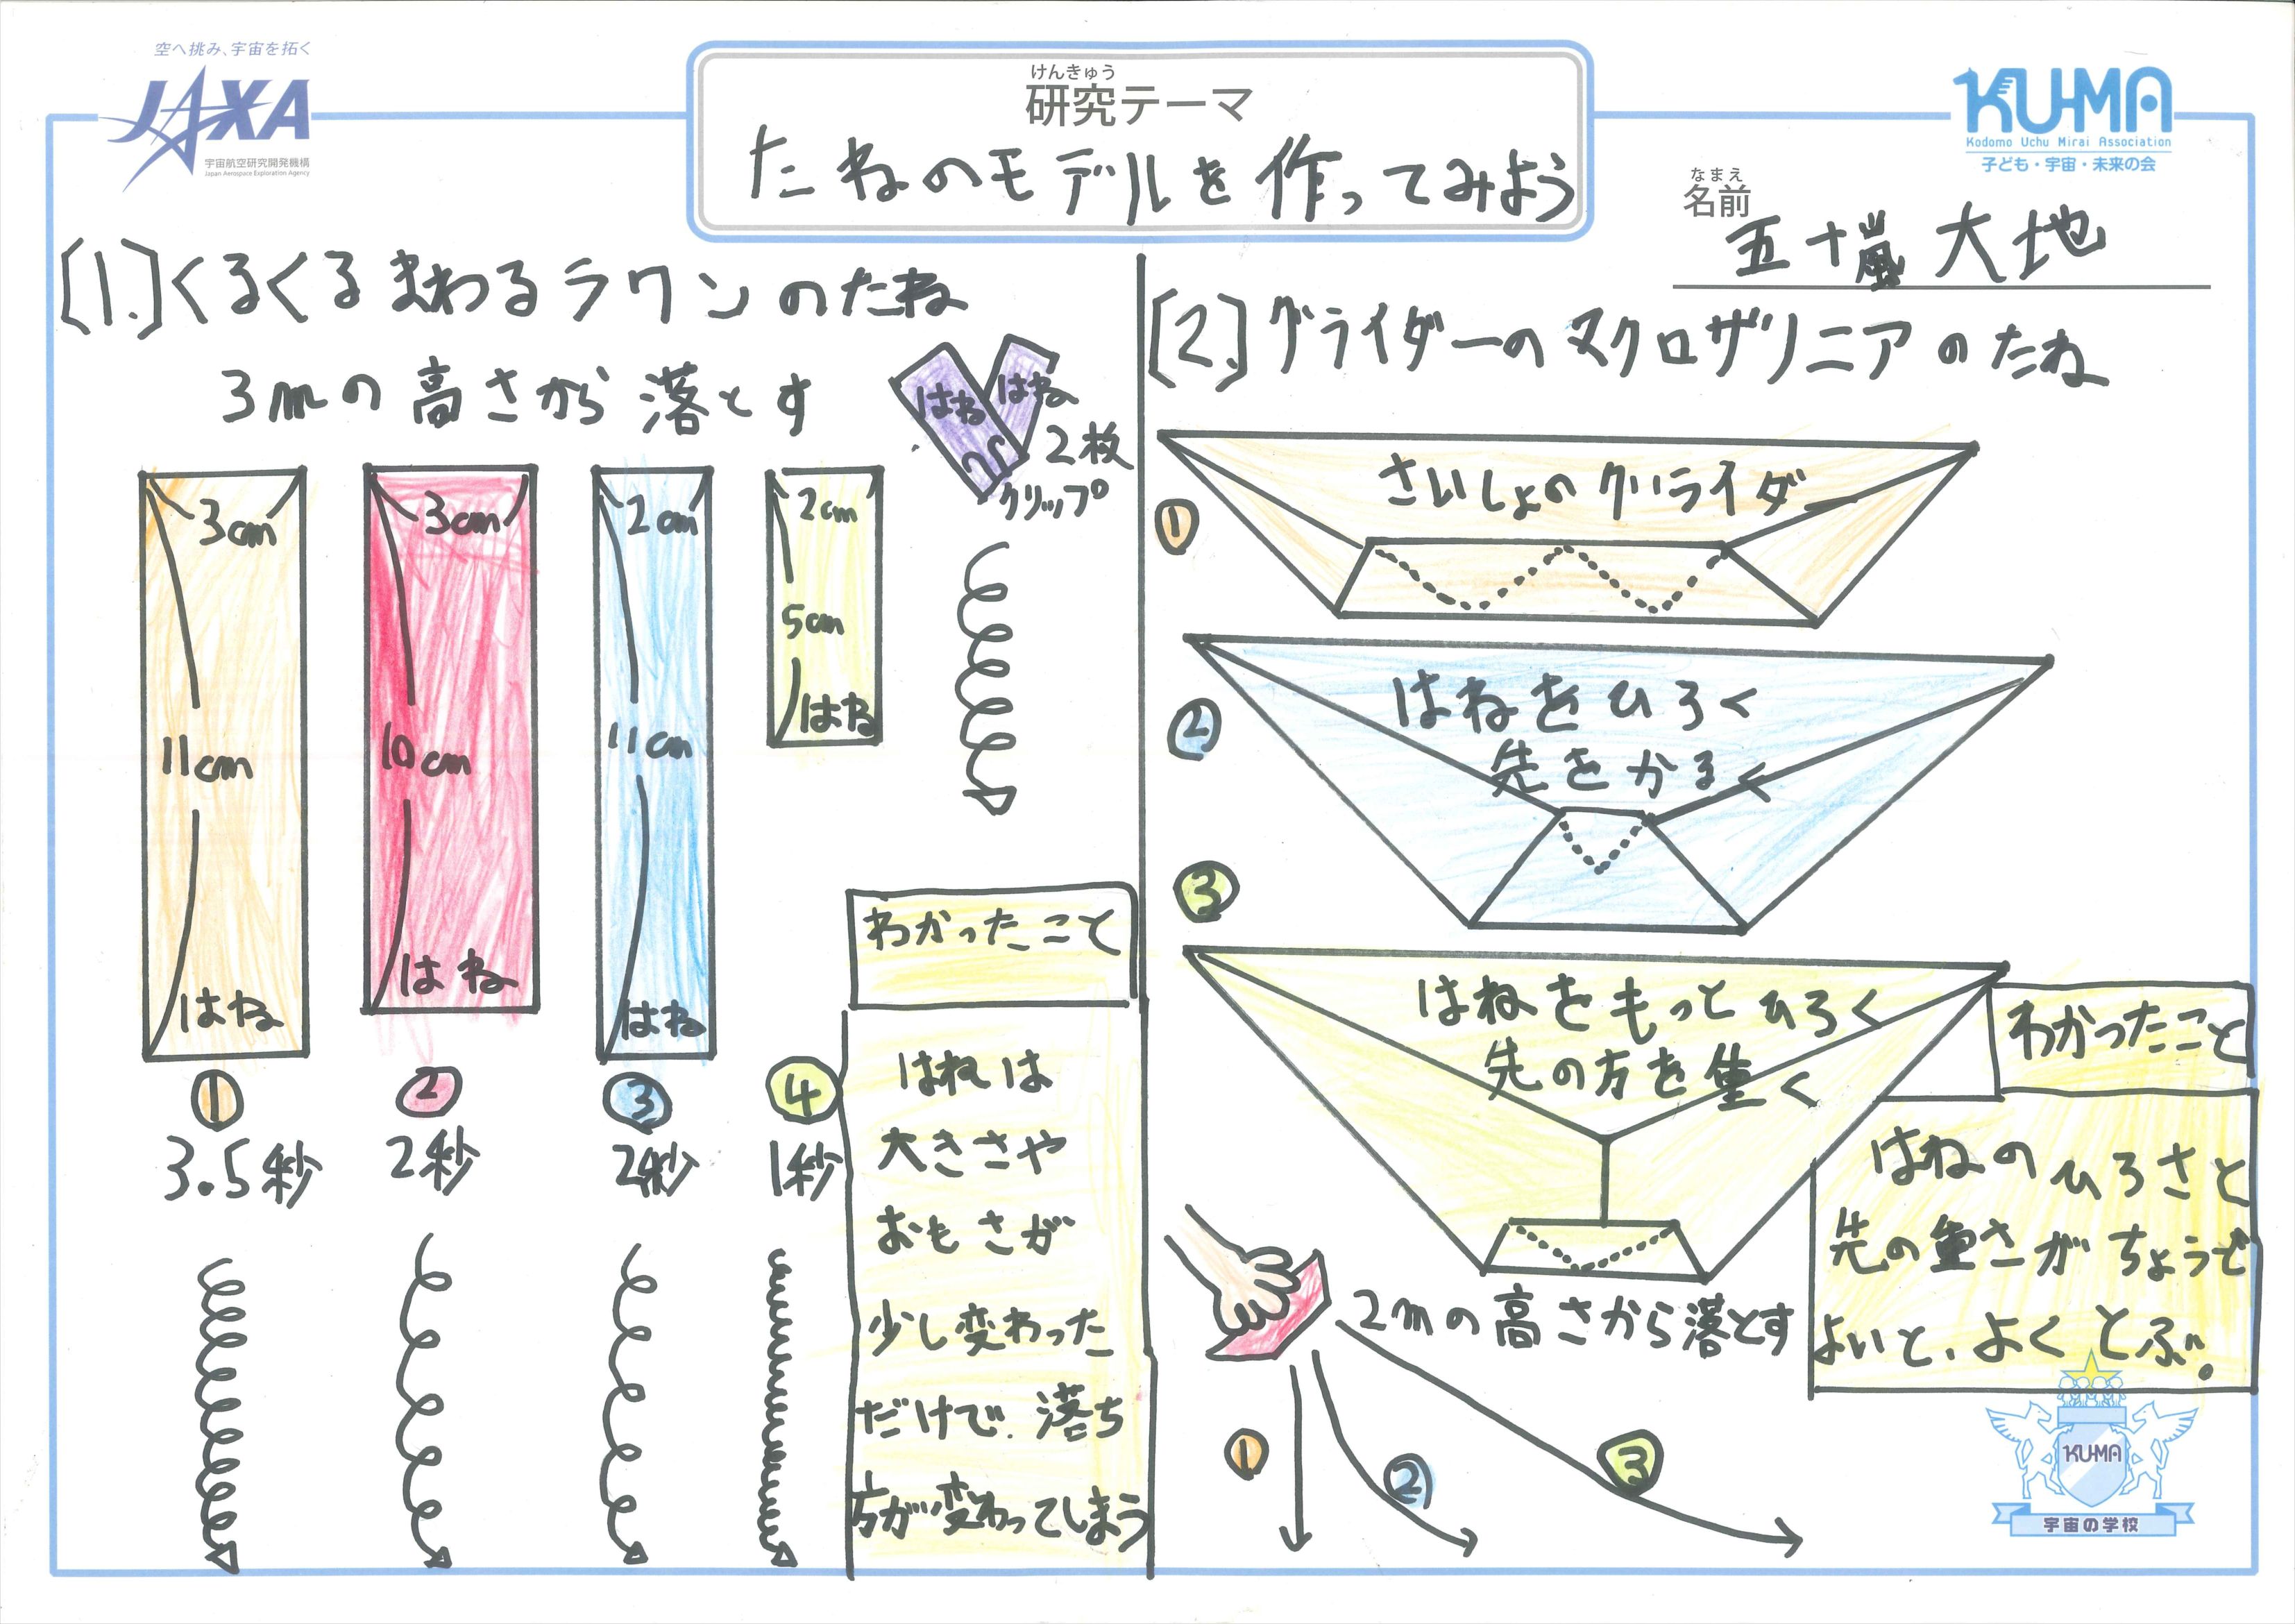 空へ挑み、宇宙を拓く
JAXA
宇宙航空研究開発機構
Japan Aerospace Exploration Agency
けんきゅう
研究テーマ
たねのモデルを作ってみよう
KU-MA
Kodomo Uchu Mirai Association
子ども・宇宙・未来の会
なまえ
名前
五十嵐 大地
[1.]くるくるまわるラワンのたね
3mの高さから落とす
はね
はね
2枚
クリップ
3cm
11cm
はね
①
3.5秒
3cm
10cm
はね
②
2秒
2cm
11cm
はね
③
2秒
2cm
5cm
はね
④
1秒
わかったこと
はねは
大きさや
おもさが
少し変わった
だけで、落ち
方が変わってしまう
[2.]グライダーのヌクロザリニアのたね
①
さいしょのグライダー
②
はねをひろく
先をかるく
③
はねをもっとひろく
先の方を重く
2mの高さから落とす
①
②
③
わかったこと
はねのひろさと
先の重さがちょうど
よいと、よくとぶ。
KU-MA
宇宙の学校